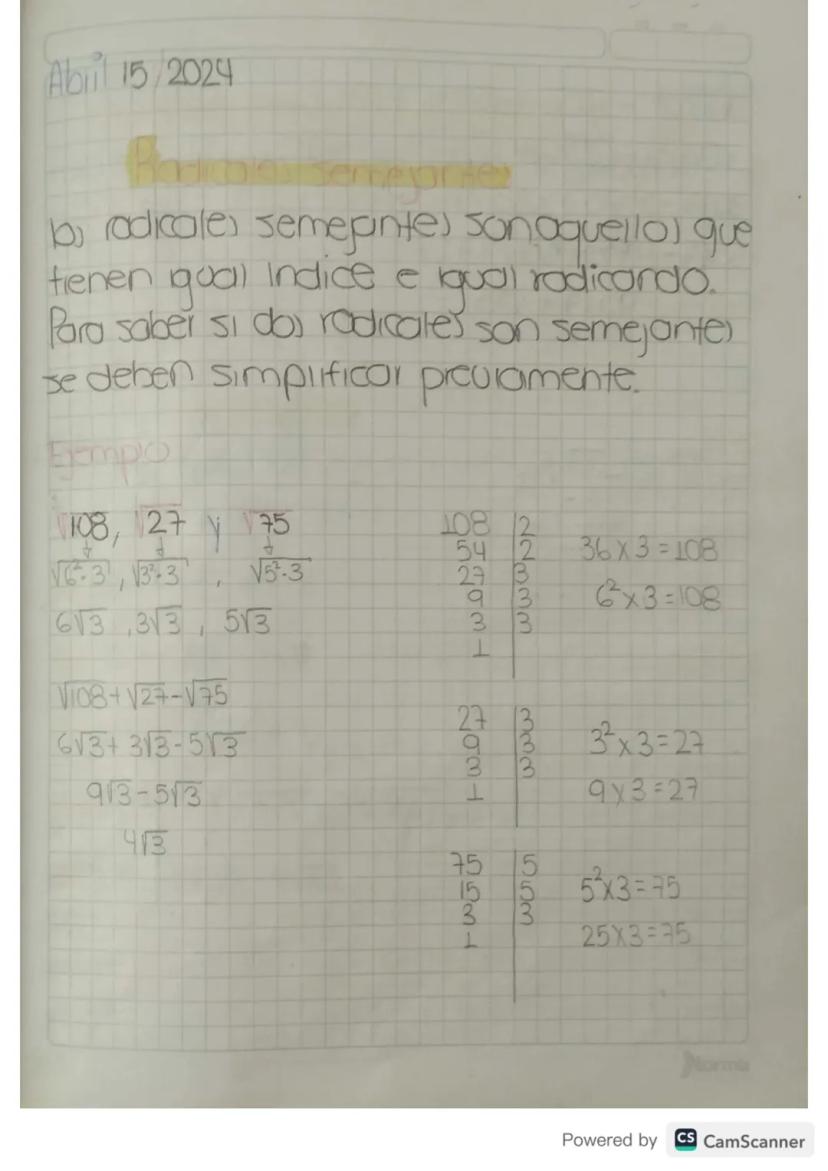 Abril 15/2024
Radicales semejantes
los radicales semejantes son aquellos que
tienen gual indice e igual radicando.
Para saber si dos radicales son semejantes
se deben simplificar previamente.
Ejemplo
√108, √27 y √75
√6²·3, √3²·3, √5²·3
6√3, 3√3, 5√3
√108+√27-√75
6√3+3√3-5√3
9√3-5√3
4√3
108 | 2
54 | 2 36×3=108
27 | 3
9 | 3 6²×3=108
3 | 3
1
27 | 3
9 | 3 3²×3=27
3 | 3
1 9×3=27
75 | 5
15 | 5 5²×3=75
3 | 3
1 25×3=75
Norma
Powered by CS CamScanner